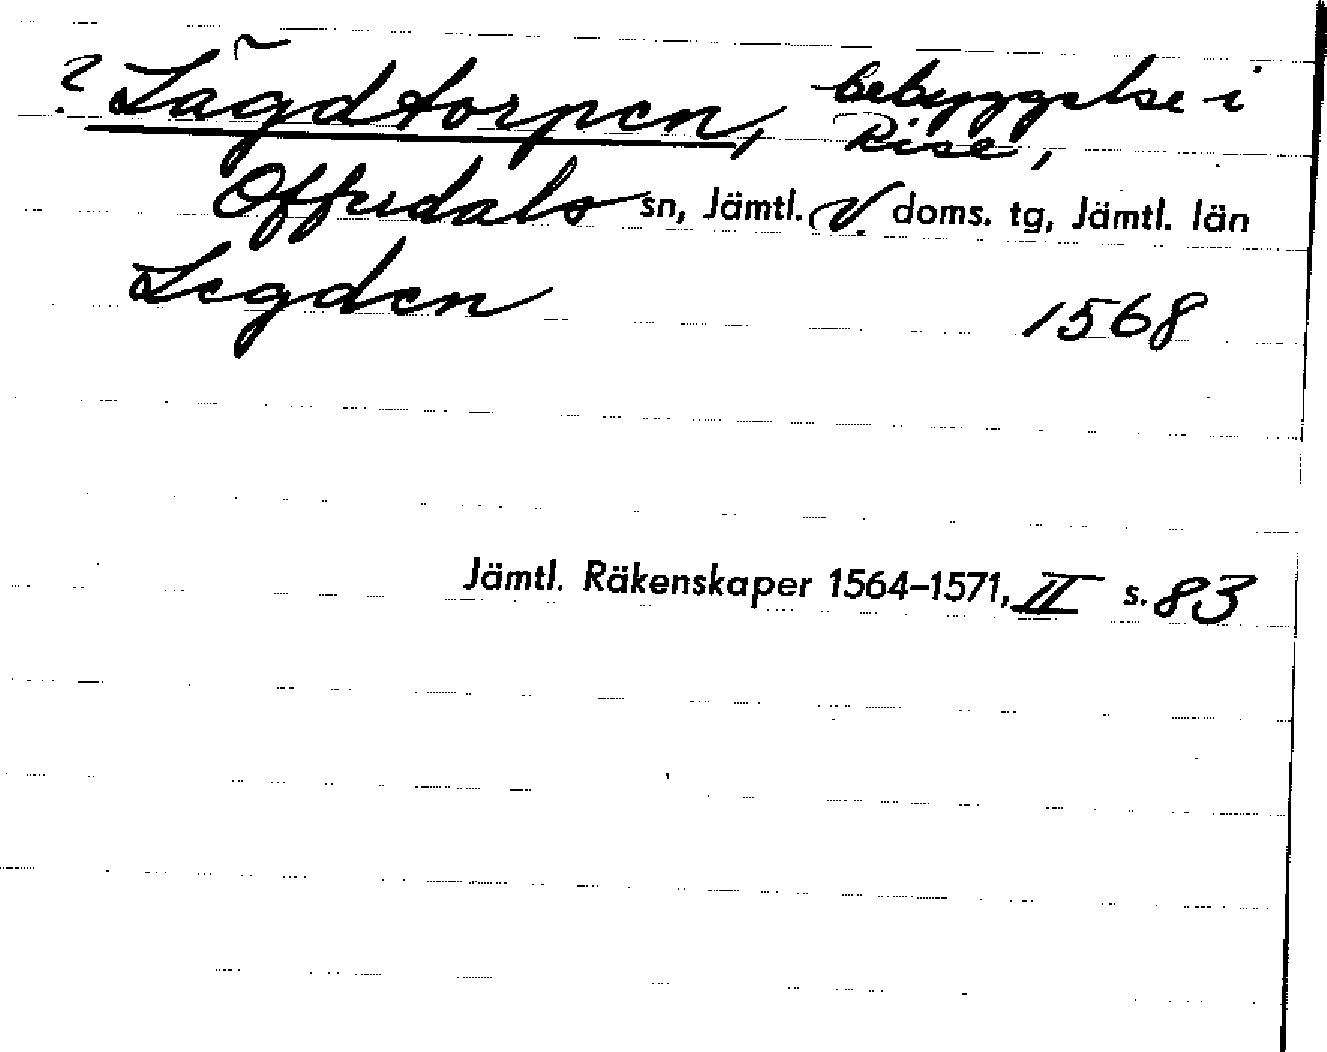 ? Lägdtorpen, bebyggelse i
Rise,
Offerdals sn, Jämtl. V. doms. tg, Jämtl. län
Legden 1568
Jämtl. Räkenskaper 1564-1571, II s. 83